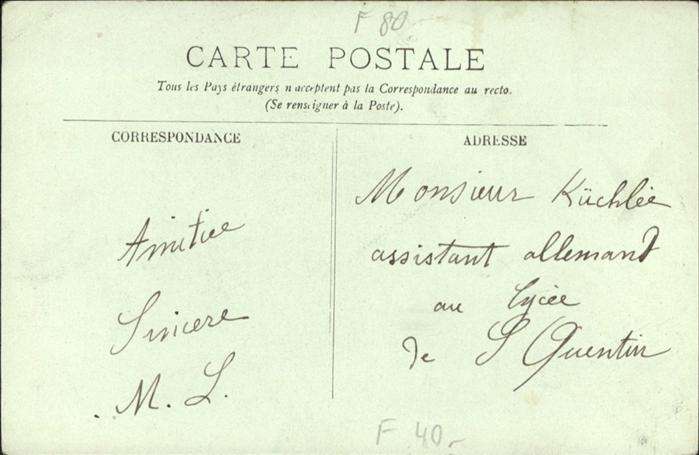 F 80
CARTE POSTALE
Tous les Pays étrangers n'acceptent pas la Correspondance au recto.
(Se renseigner à la Poste).
CORRESPONDANCE
Amitiée
Sincere
M. L.
ADRESSE
Monsieur Küchlée
assistant allemand
au lycée
de S Quentin
F 40.-